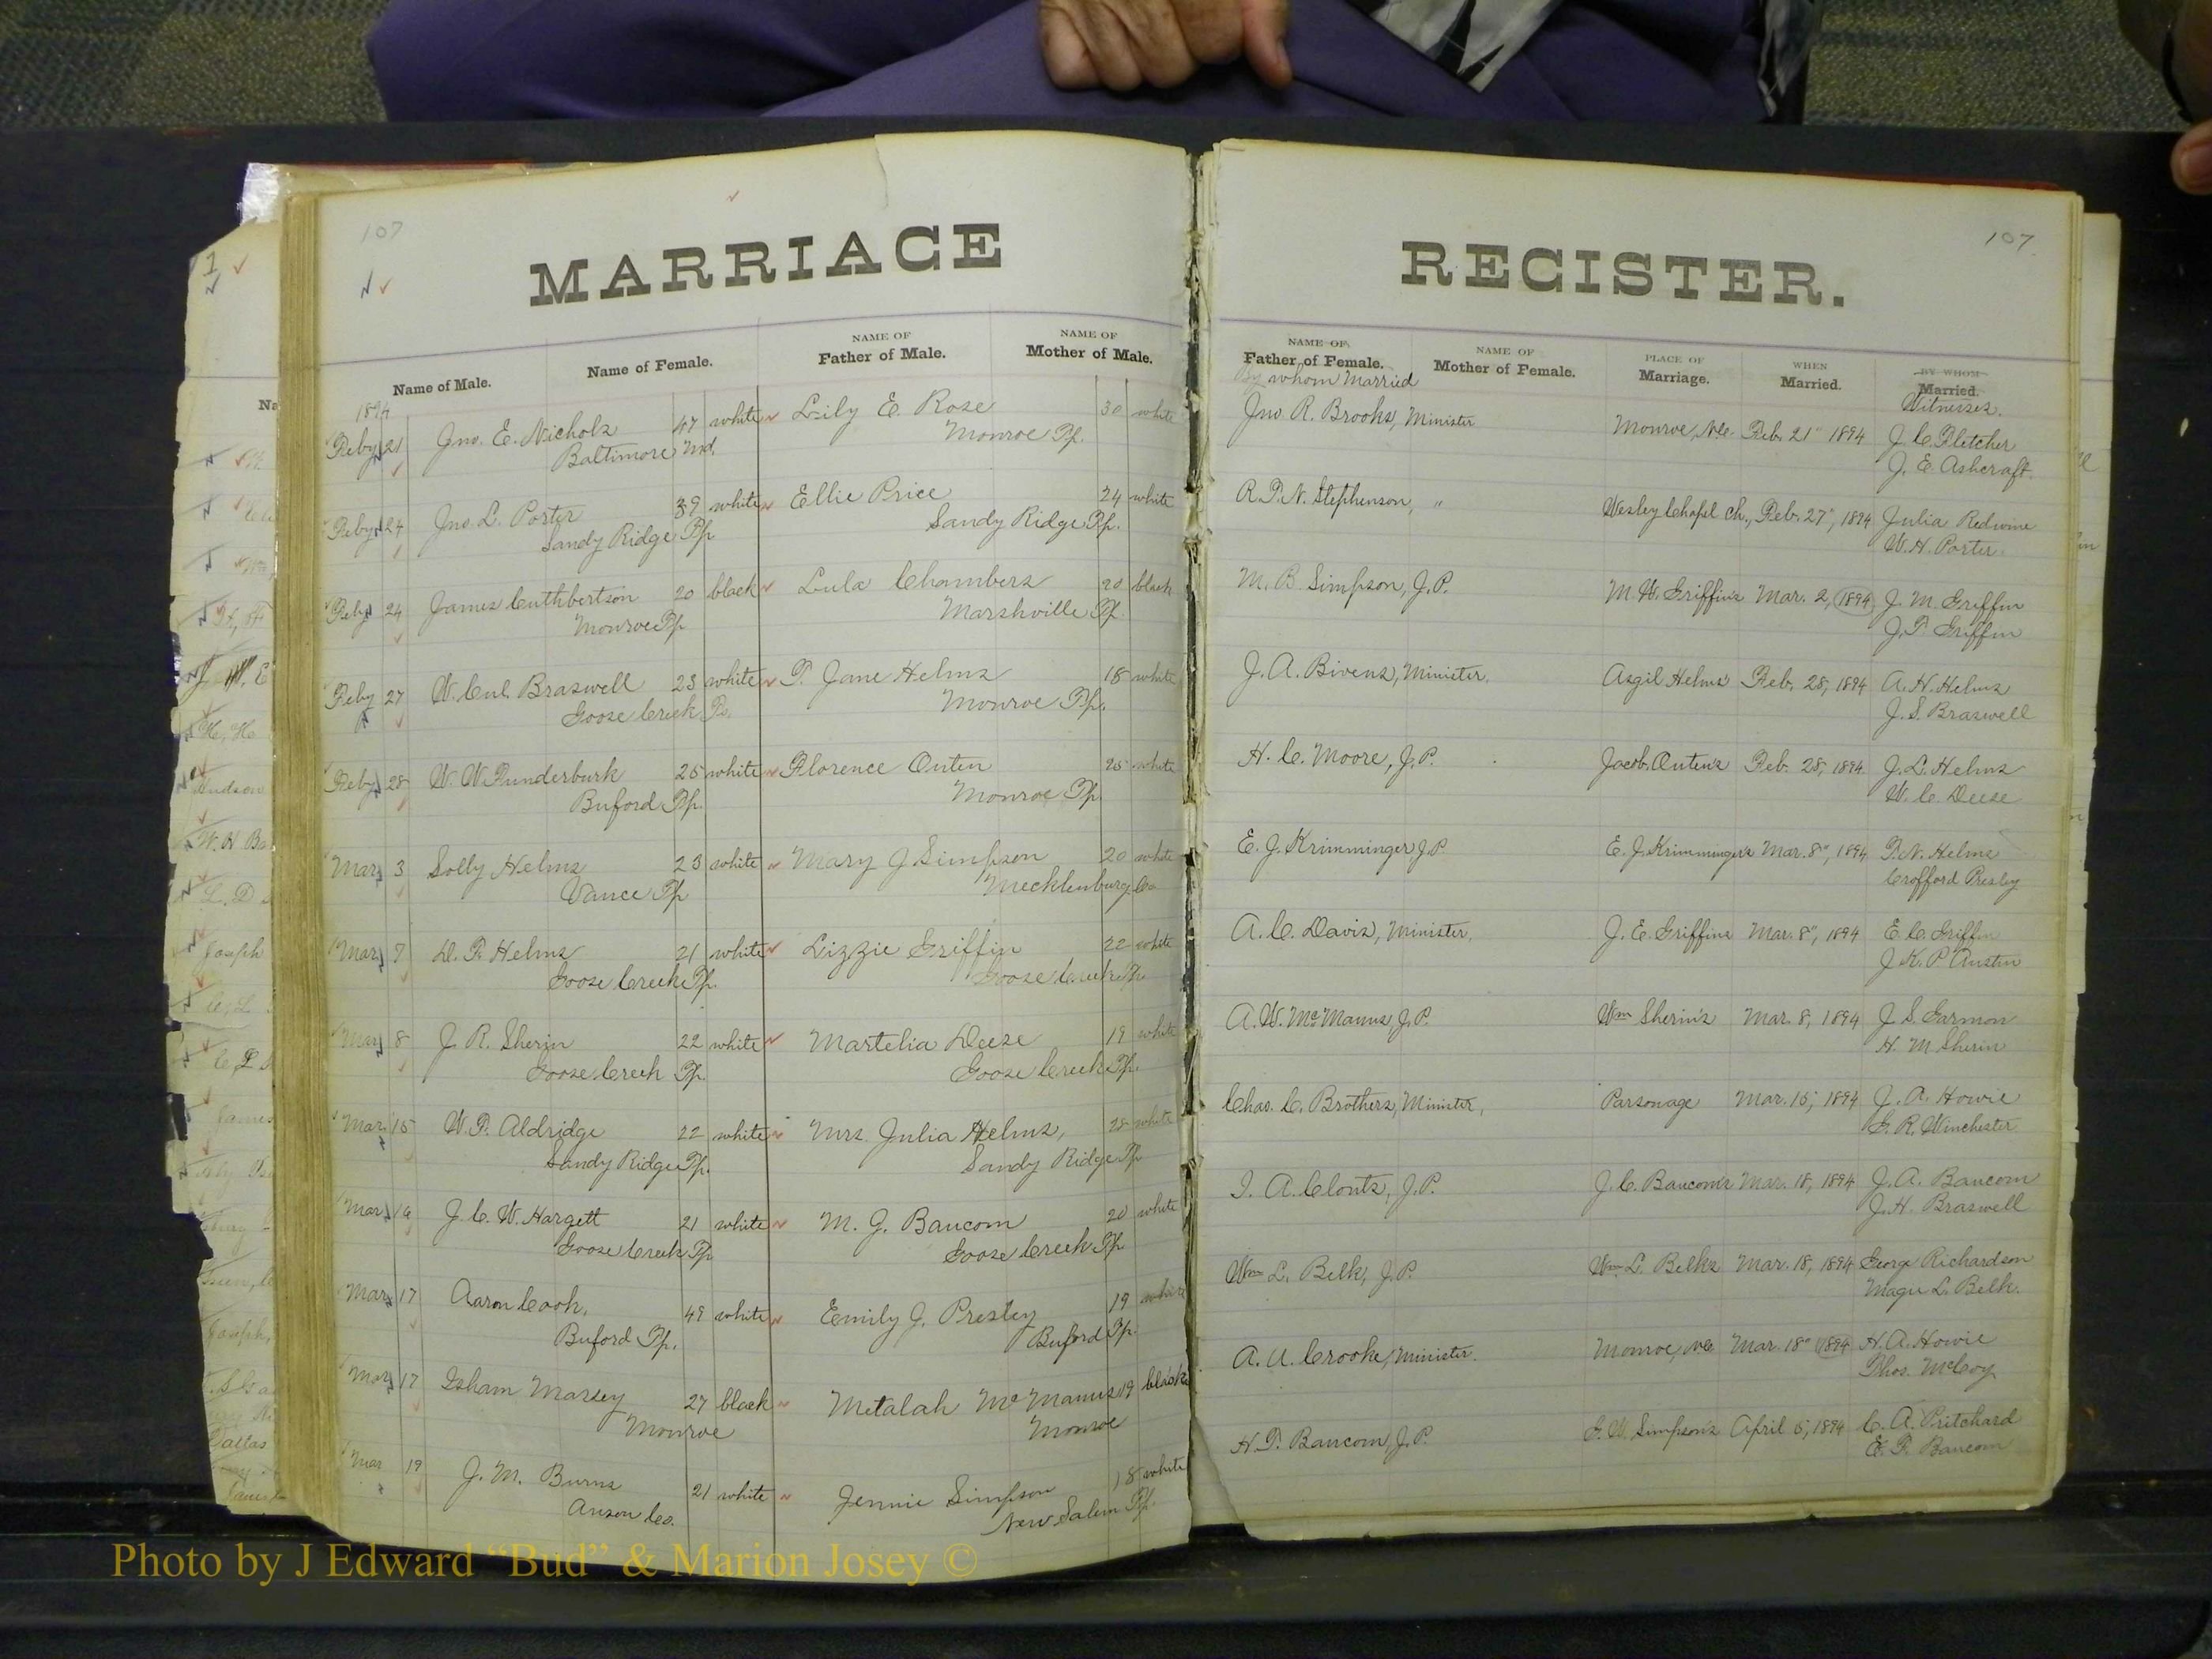 107
MARRIAGE
Name of Male.
Name of Female.
NAME OF
Father of Male.
NAME OF
Mother of Male.
1894
Feby 21 Jno. E. Nichols 47 white Lily E. Rose 30 white
Baltimore Md. Monroe Tp.
Feby 24 Jno. L. Porter 39 white Ellie Price 24 white
Sandy Ridge Tp. Sandy Ridge Tp.
Feby 24 James Cuthbertson 20 black Lula Chambers 20 black
Monroe Tp Marshville Tp.
Feby 27 W. Cul. Braswell 23 white T. Jane Helms 18 white
Goose Creek Tp. Monroe Tp.
Feby 28 W. W. Funderburk 25 white Florence Outen 25 white
Buford Tp. Monroe Tp.
Mar 3 Solly Helms 23 white Mary J Simpson 20 white
Vance Tp Mecklenburg Co
Mar 7 D. F. Helms 21 white Lizzie Griffin 22 white
Goose Creek Tp. Goose Creek Tp.
Mar 8 J. R. Sherin 22 white Martelia Deese 19 white
Goose Creek Tp. Goose Creek Tp.
Mar. 15 W. P. Aldridge 22 white Mrs. Julia Helms, 28 white
Sandy Ridge Tp. Sandy Ridge Tp
Mar 16 J. C. W. Hargett 21 white M. J. Baucom 20 white
Goose Creek Tp Goose Creek Tp
Mar 17 Aaron Cook, 49 white Emily J. Presley 19 white
Buford Tp. Buford Tp.
Mar 17 Isham Massey 27 black Metalah McManus 19 black
Monroe Monroe
Mar 19 J. M. Burns 21 white Jennie Simpson 18 white
Anson Co. New Salem Tp.
107
REGISTER.
NAME OF
Father of Female.
NAME OF
Mother of Female.
PLACE OF
Marriage.
WHEN
Married.
BY WHOM
Married.
By whom Married
Witnesses.
Jno. R. Brooks, Minister Monroe, N.C. Feb. 21" 1894 J. C. Fletcher
J. E. Ashcraft.
R. T. N. Stephenson, " Wesley Chapel Ch., Feb. 27", 1894 Julia Redwine
W. H. Porter
M. B. Simpson, J.P. M. W. Griffin's Mar. 2, 1894 J. M. Griffin
J. T. Griffin
J. A. Bivens, Minister. Asgil Helms' Feb. 28, 1894 A. H. Helms
J. S. Braswell
H. C. Moore, J.P. Jacob Outen's Feb. 28, 1894 J. L. Helms
W. C. Deese
E. J. Krimminger, J.P E. J. Krimminger's Mar. 8", 1894 T. N. Helms
Crofford Presley
A. C. Davis, Minister, J. E. Griffins Mar. 8", 1894 E. C. Griffin
J. K. P Austin
A. W. McManus, J.P. Wm Sherin's Mar. 8, 1894 J. S. Garmon
H. M Sherin
Chas. C. Brothers, Minister, Parsonage Mar. 15, 1894 J. A. Howie
G. R. Winchester
I. A. Clontz, J.P. J. C. Baucom's Mar. 18, 1894 J. A. Baucom
J. H. Braswell
Wm L. Belk, J.P. Wm L. Belks Mar. 18, 1894 George Richardson
Magie L. Belk.
A. U. Crooke, Minister. Monroe, NC Mar. 18" 1894 H. A. Howie
Thos. McCoy
H. T. Baucom, J.P. G. W. Simpson's April 5, 1894 C. A. Pritchard
E. T. Baucom
Photo by J Edward “Bud” & Marion Josey ©